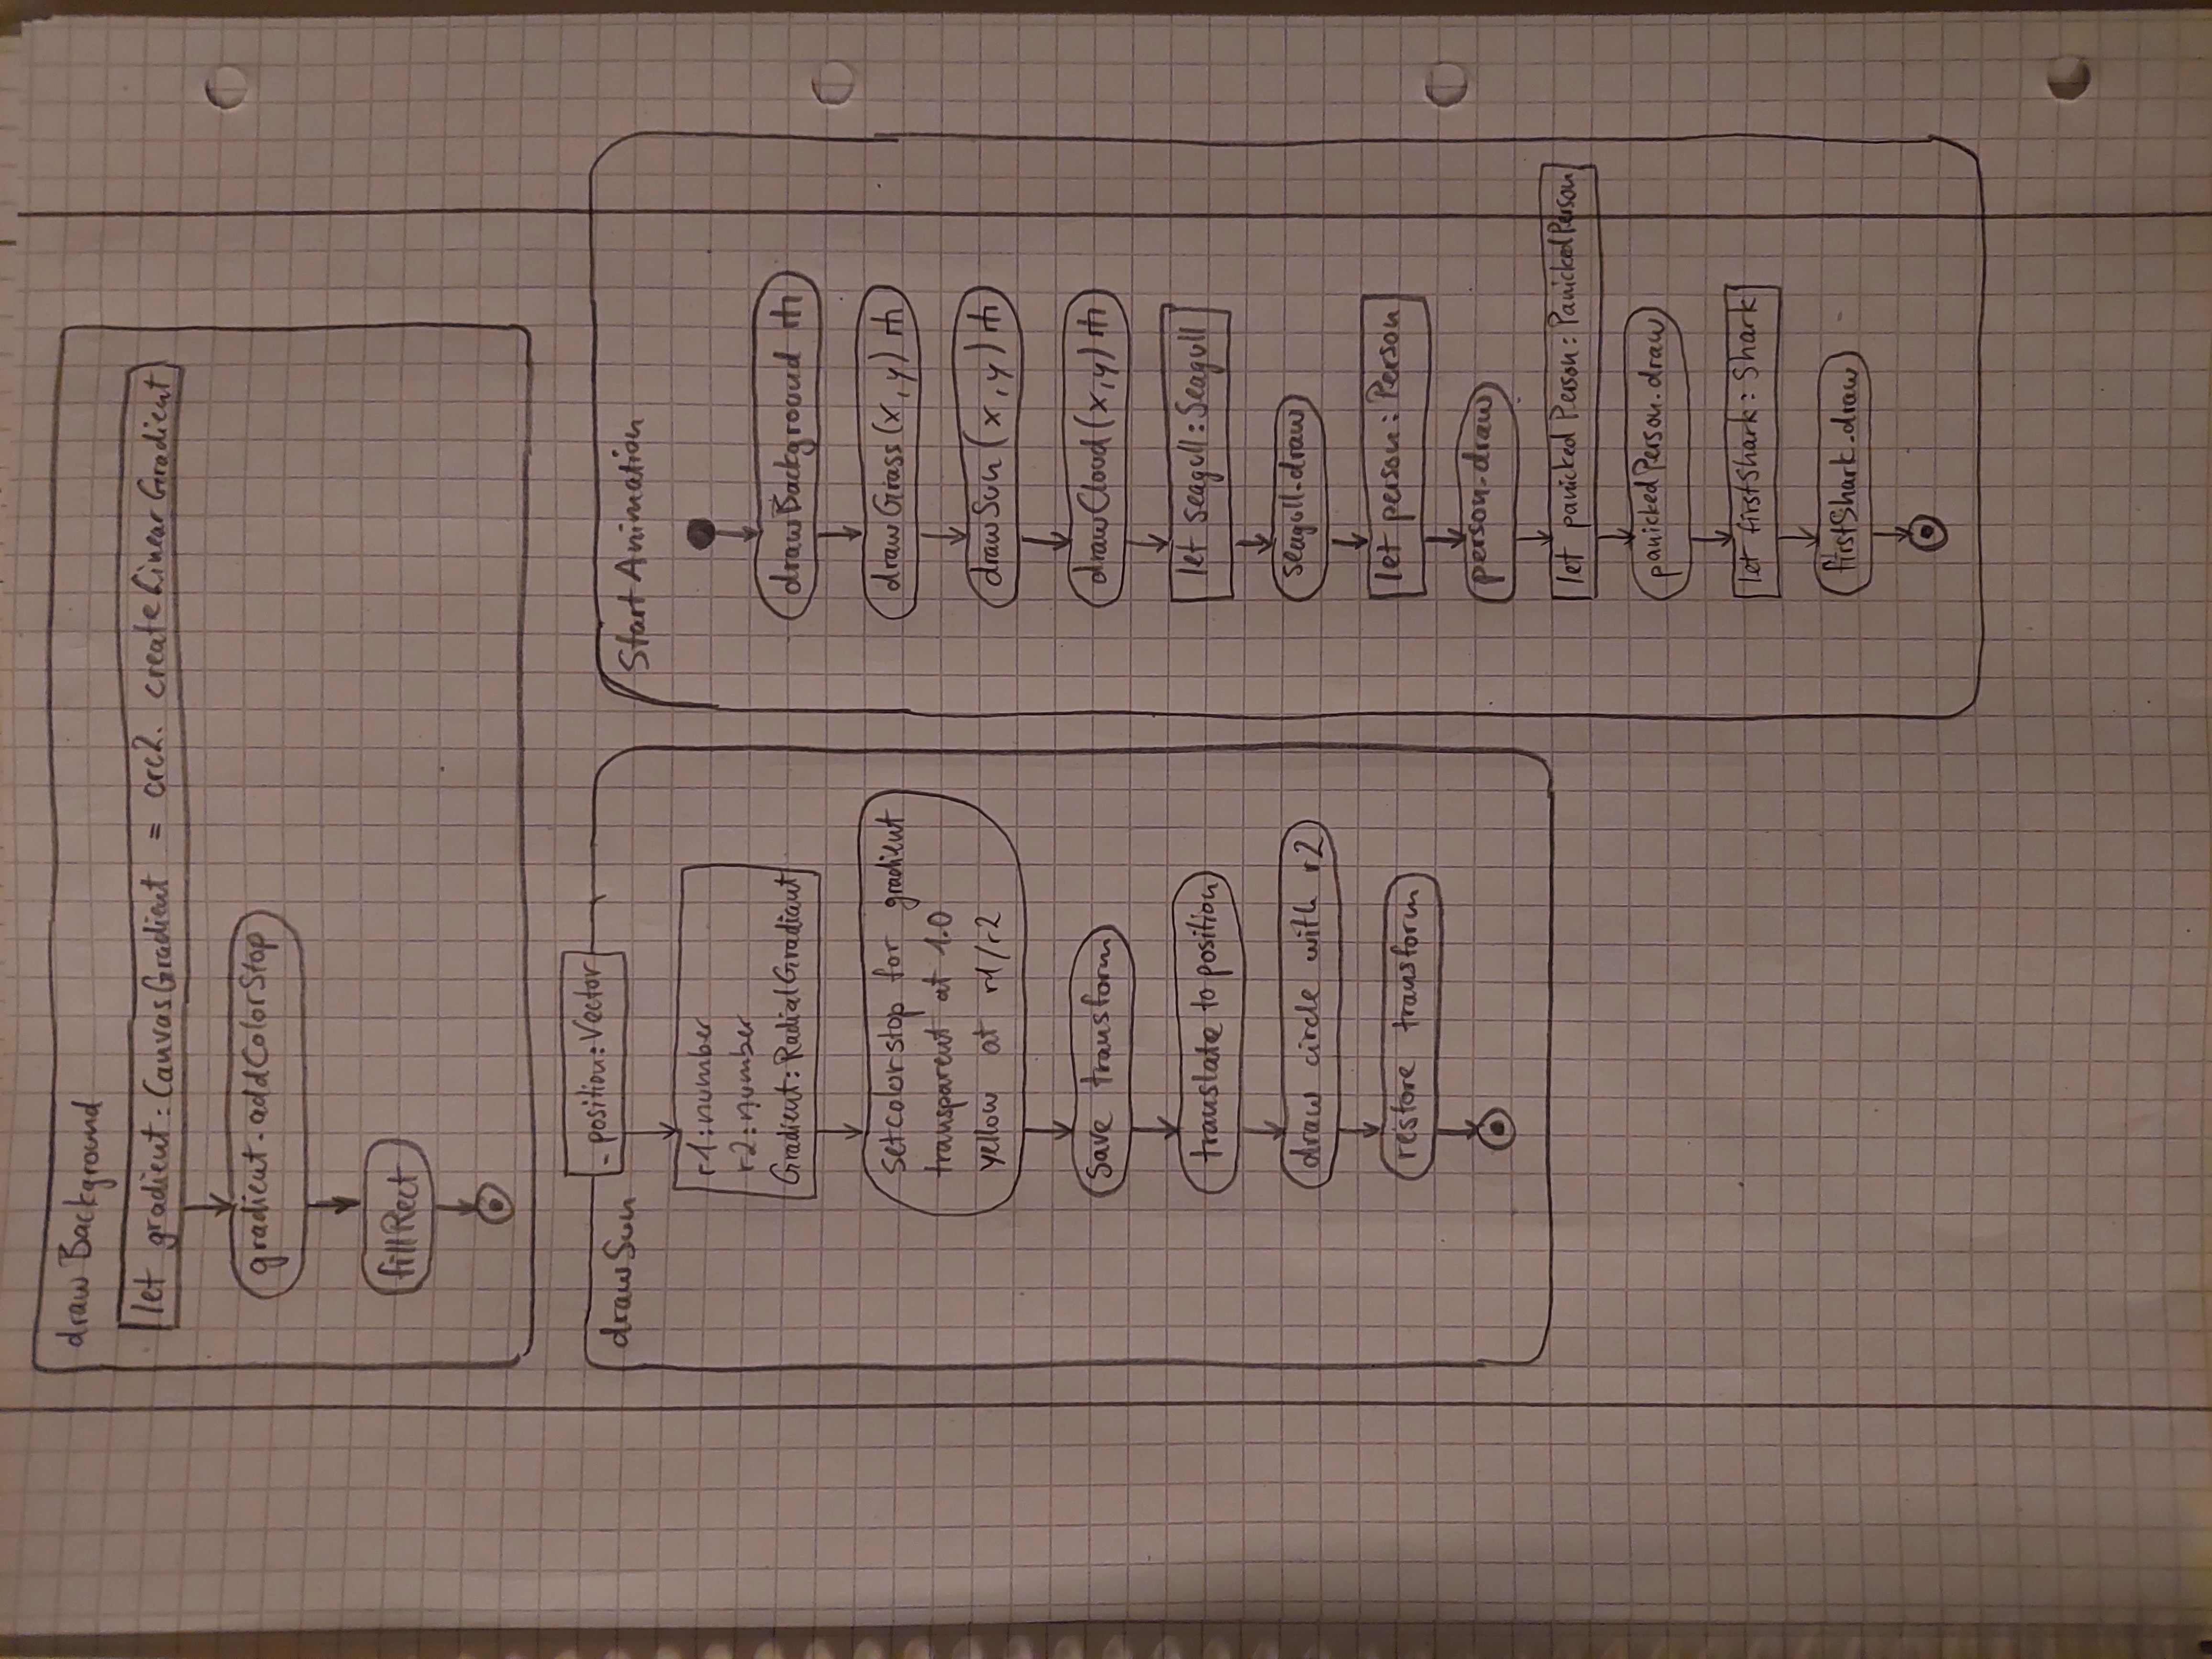 drawBackground
let gradient: CanvasGradient = crc2. createLinearGradient
gradient.addColorStop
fillRect
_position: Vector
drawSun
r1: number
r2: number
Gradient: RadialGradiant
setcolorstop for gradient
transparent at 1.0
yellow at r1/r2
save transform
translate to position
draw circle with r2
restore transform
Start Animation
drawBackground
drawGrass (x, y)
drawSun (x, y)
drawCloud (x, y)
let seagull: Seagull
seagull.draw
let person: Person
person.draw
let panickedPerson: PanickedPerson
panickedPerson.draw
let firstShark: Shark
firstShark.draw